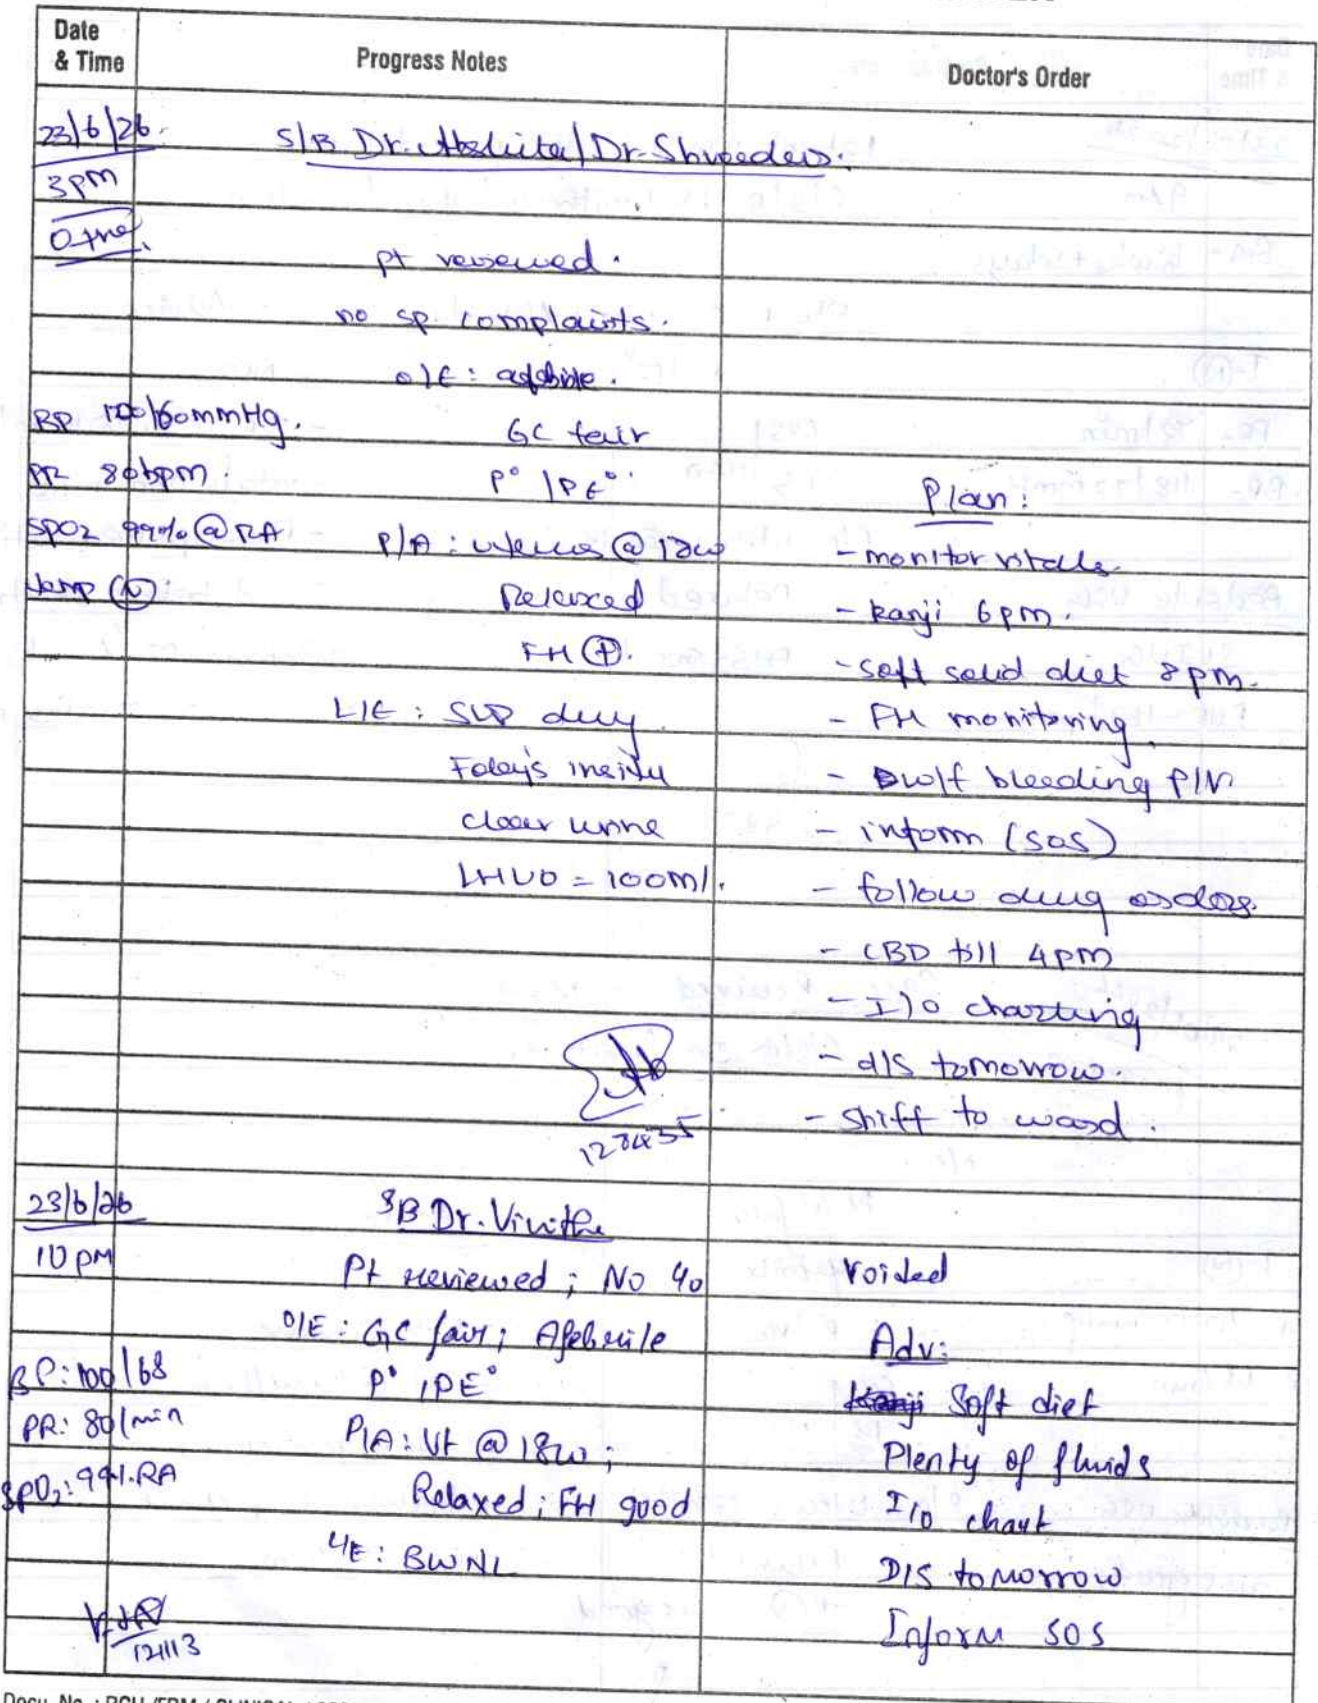 Date & Time
Progress Notes
Doctor's Order
23/6/26.
3pm
O+ve
S/B Dr. /Dr.
pt reviewed.
no sp. complaints.
O/E: afebrile.
BP 100/60mmHg.
GC fair
PR 80bpm.
P° IPE°
Plan:
SPO2 99% @ RA
P/A: uterus @ 18w
- monitor vitals
Temp (N)
Relaxed
- kanji 6pm.
FH (+).
- soft solid diet 8pm.
L/E: SVP dry
- FH monitoring
Foley's insitu
- w/f bleeding P/V
clear urine
- inform (SOS)
LHUO = 100ml.
- follow drug orders.
- CBD till 4pm
- I/O charting
- d/s tomorrow.
- Shift to ward.
23/6/26
SB Dr. Vinitha
10 pm
Pt reviewed; No c/o
Voided
O/E: GC fair; Afebrile
Adv:
BP: 100/68
P° IPE°
Soft diet
PR: 80/min
P/A: Ut @ 18w;
Plenty of fluids
SPO2: 99%.RA
Relaxed; FH good
I/O chart
L/E: BWNL
D/S tomorrow
Inform SOS
121113